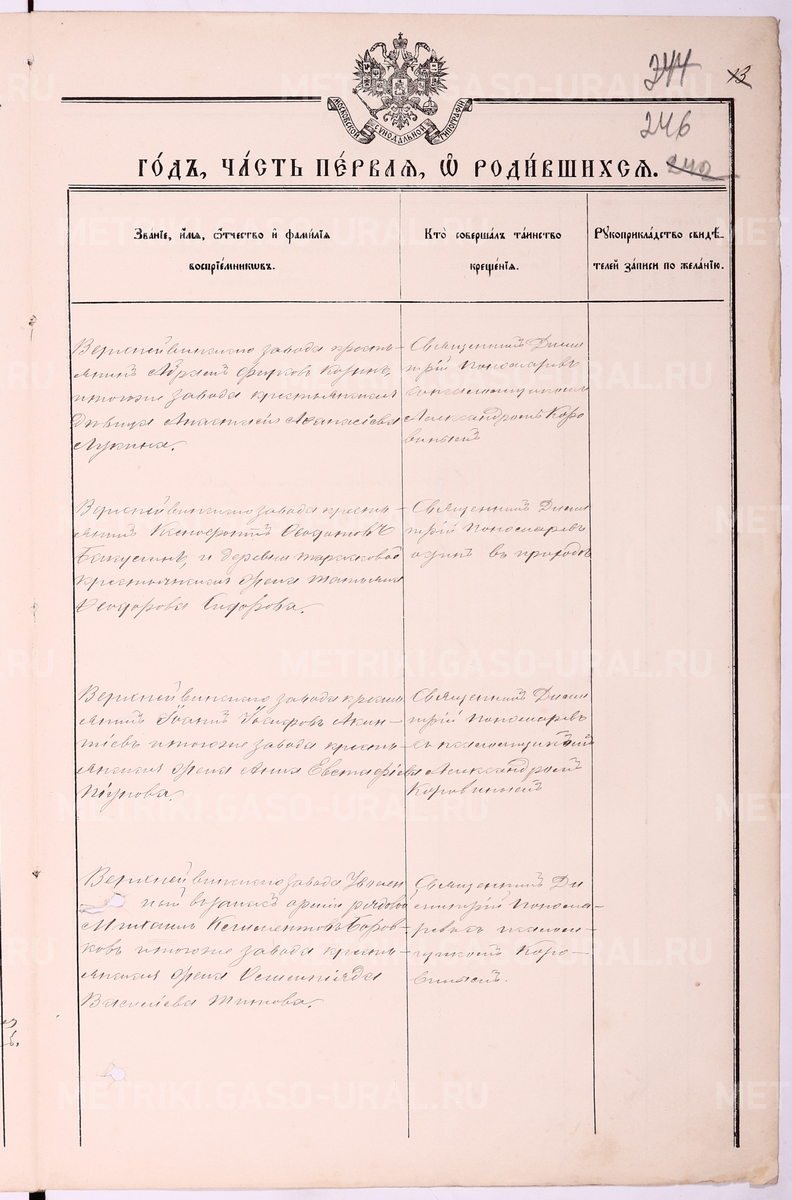 244
13
246
242
МОСКОВСКОЙ СѴНОДАЛЬНОЙ ТИПОГРАФІИ
ГО́ДЪ, ЧА́СТЬ ПЕ́РВАѦ, Ѿ РОДИ́ВШИХСѦ.
Зва́нїе, и҆́мѧ, ѻ҆́тчество и҆ фами́лїѧ
воспрїе́мникѡвъ.
Кто̀ соверша́лъ та́инство
креще́нїѧ.
Рꙋкоприкла́дство свидѣ́-
телей за́писи по жела́нїю.
Верхнейвинскаго завода кресть-
янинъ Фирсовъ Козинъ,
и тогоже завода крестьянская
дѣвица Анастасія Аѳанасіева
Лукина.
Священникъ Дими
трій Пономаревъ
съ псаломщикомъ
Александромъ Коро
винымъ
Верхнейвинскаго завода кресть-
янинъ Ксенофонтъ Ѳеодотовъ
и деревни Тарасковой
крестьянская жена Татьяна
Ѳеодорова Сидорова.
Священникъ Дими
трій Пономаревъ
одинъ въ приходѣ
Верхнейвинскаго завода кресть
янинъ Іоаннъ Іосифовъ Акин-
тіевъ и тогоже завода кресть-
янская жена Анна Евстафіева
Священникъ Дими
трій Пономаревъ
съ псаломщикомъ
Александромъ
Коровинымъ
Верхнейвинскаго завода Уволен
ный въ запасъ арміи рядовой
Михаилъ Климентовъ Боров-
ковъ и тогоже завода кресть-
янская жена
Васильева Титова.
Священникъ Ди
митрій Понома-
ревъ съ псалом-
щикомъ Коро-
винымъ.
METRIKI.GASO-URAL.RU